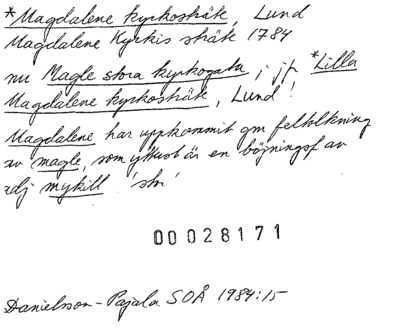 *Magdalene kyrkosträk, Lund
Magdalene Kyrkis sträk 1784
nu Magle stora kyrkogata; jf *Lilla
Magdalene kyrkosträk, Lund!
Magdalene har uppkommit gm feltolkning
av magle, som ytterst är en böjningsf av
adj mykill 'stor'
00028171
Danielsson-Pajala SOÅ 1984:15